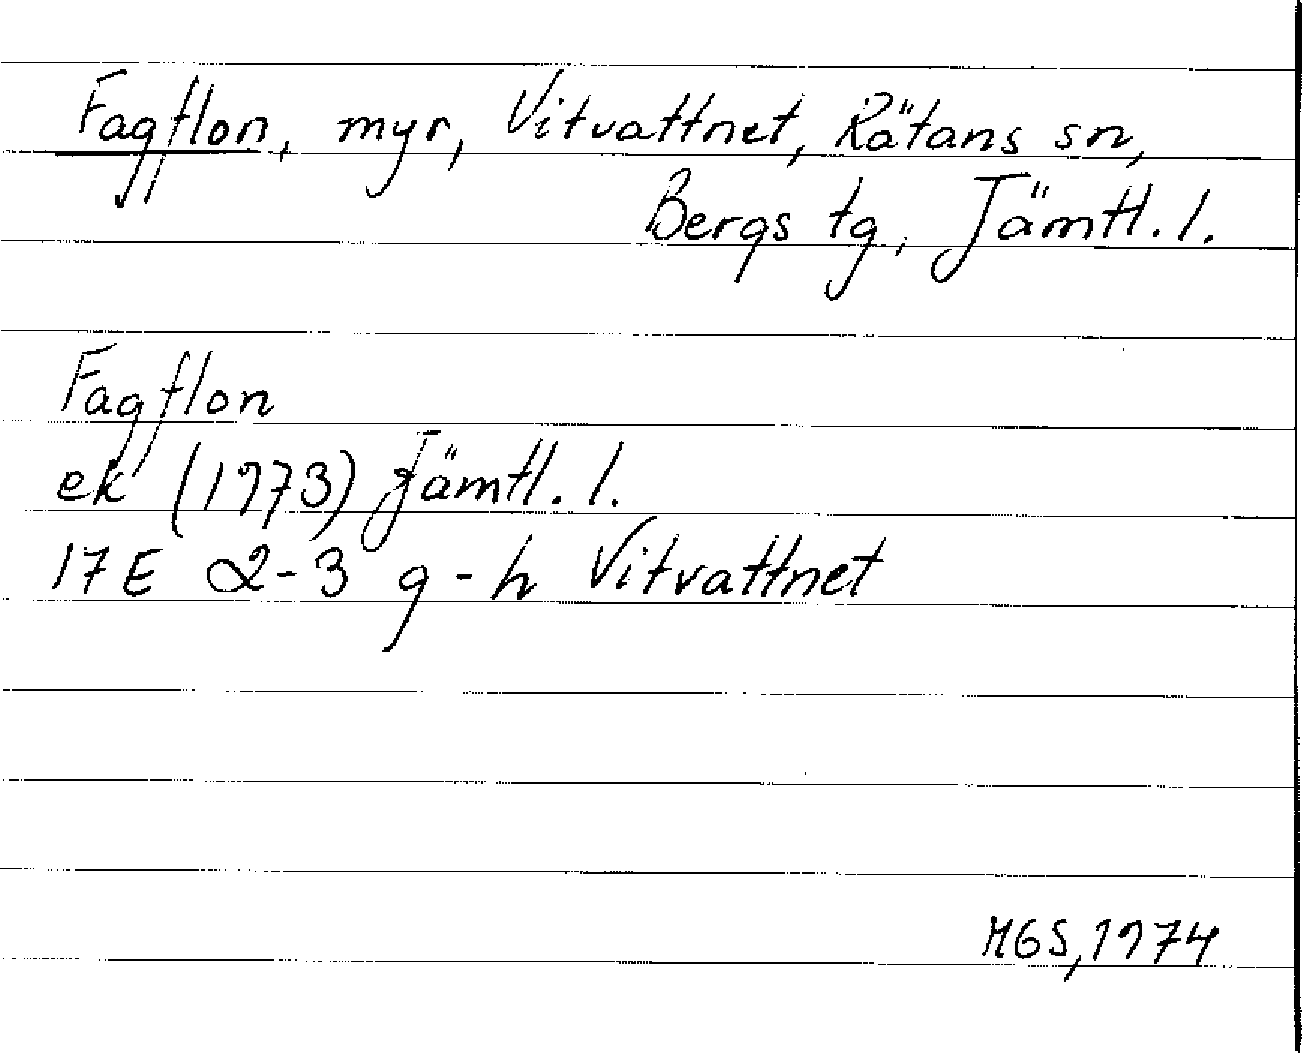 Fagflon, myr, Vitvattnet, Rätans sn,
Bergs tg, Jämtl. l.
Fagflon
ek (1973) Jämtl. l.
17 E 2-3 g-h Vitvattnet
MGS, 1974